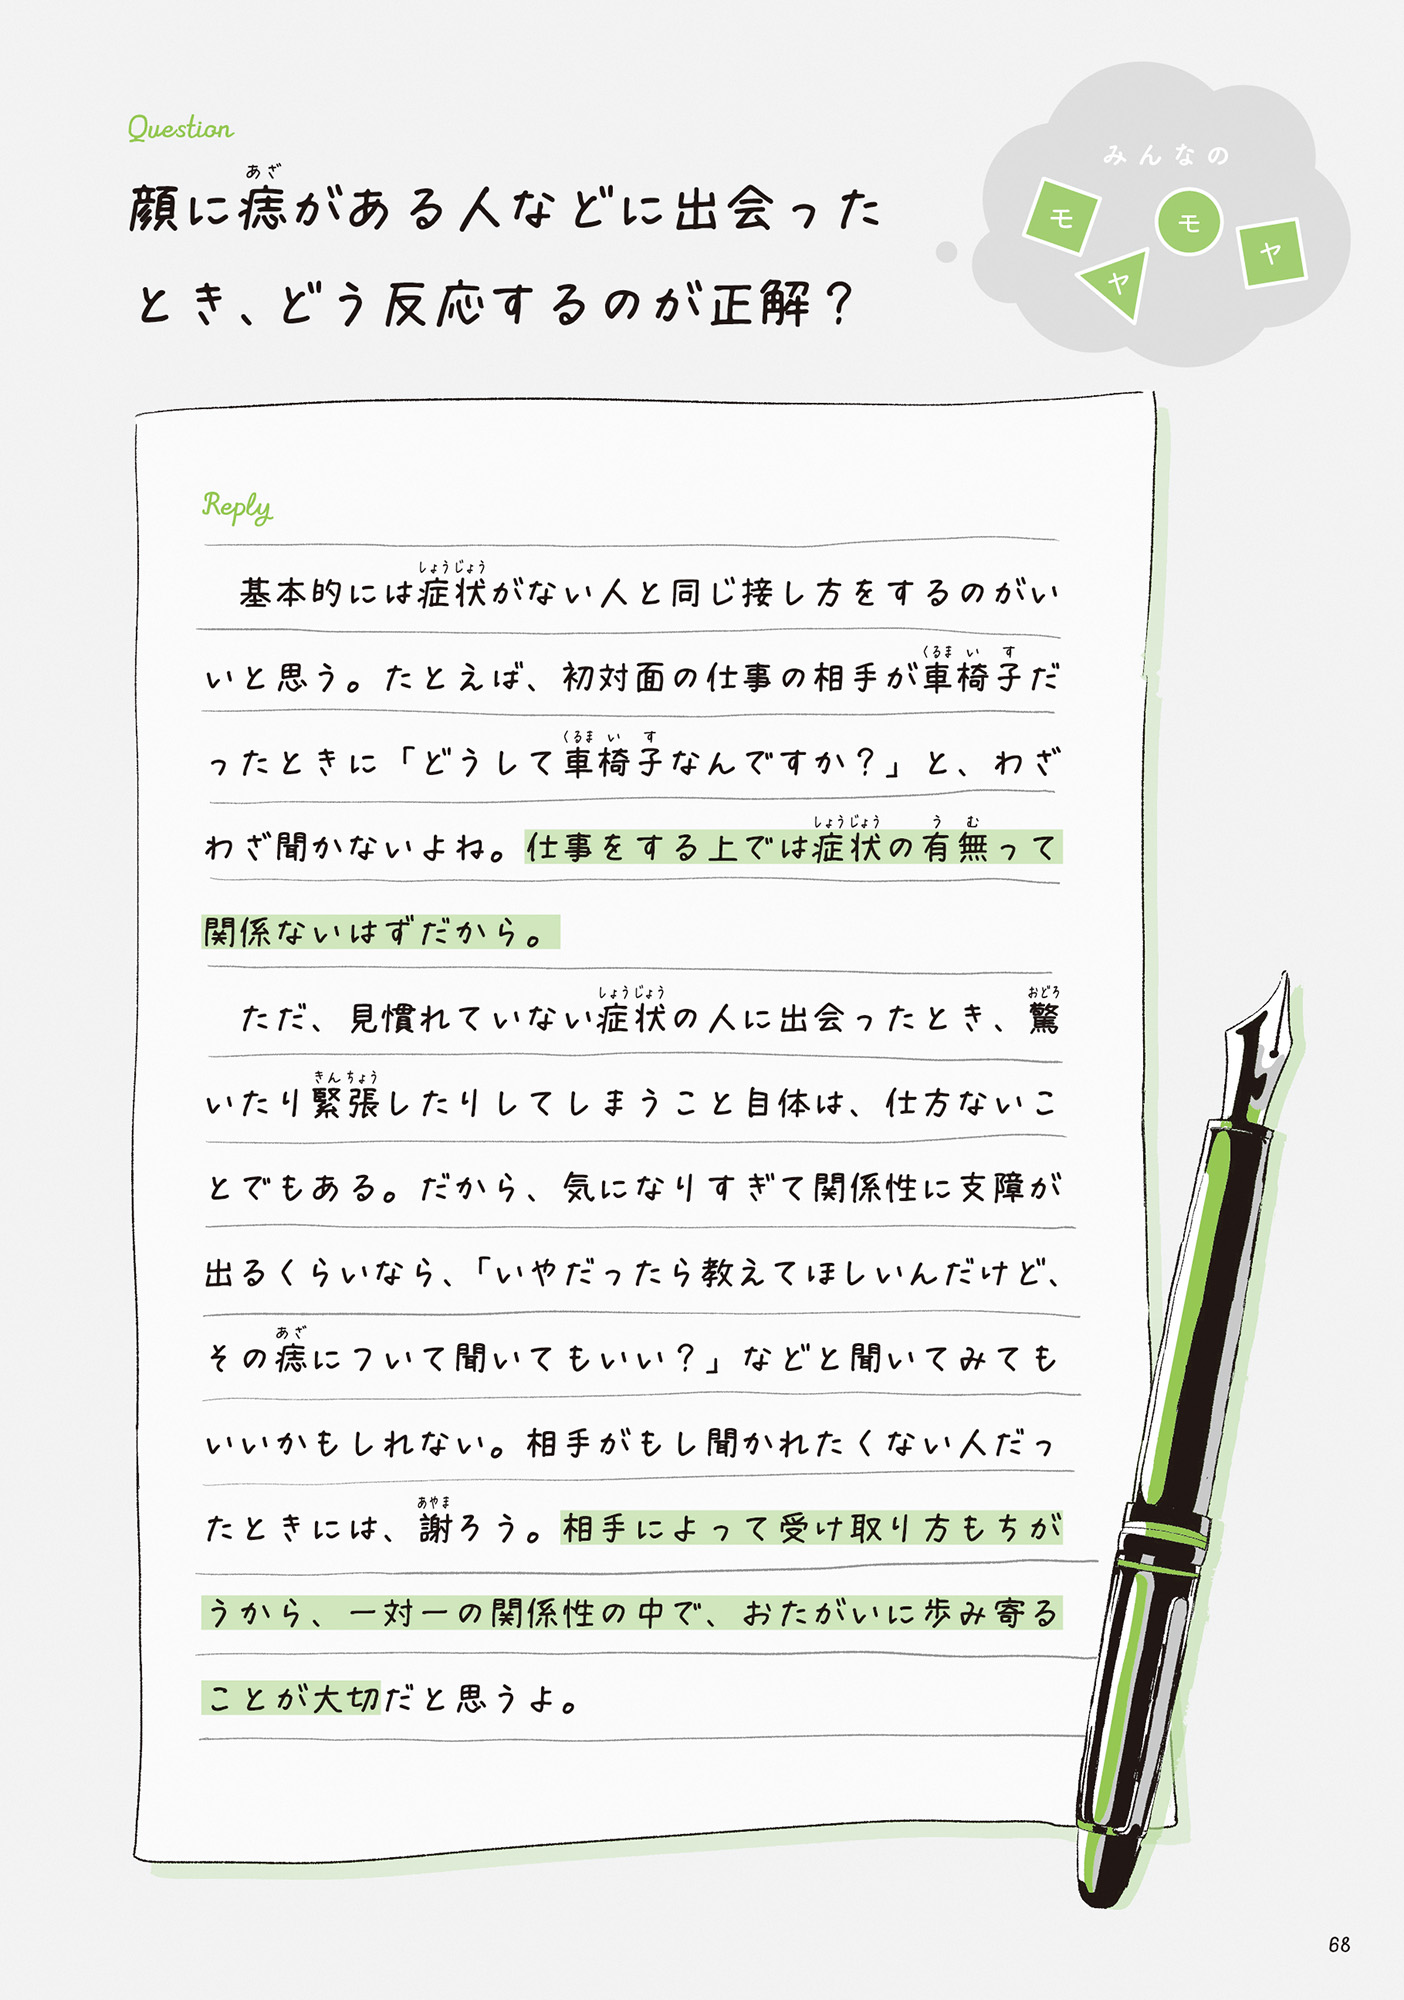 Question
顔に痣がある人などに出会った
とき、どう反応するのが正解？
あざ
みんなの
モヤモヤ
Reply
基本的には症状がない人と同じ接し方をするのがい
しょうじょう
いと思う。たとえば、初対面の仕事の相手が車椅子だ
くるまいす
ったときに「どうして車椅子なんですか？」と、わざ
くるまいす
わざ聞かないよね。仕事をする上では症状の有無って
しょうじょう うむ
関係ないはずだから。
ただ、見慣れていない症状の人に出会ったとき、驚
しょうじょう おどろ
いたり緊張したりしてしまうこと自体は、仕方ないこ
きんちょう
とでもある。だから、気になりすぎて関係性に支障が
出るくらいなら、「いやだったら教えてほしいんだけど、
その痣について聞いてもいい？」などと聞いてみても
あざ
いいかもしれない。相手がもし聞かれたくない人だっ
たときには、謝ろう。相手によって受け取り方もちが
あやま
うから、一対一の関係性の中で、おたがいに歩み寄る
ことが大切だと思うよ。
68